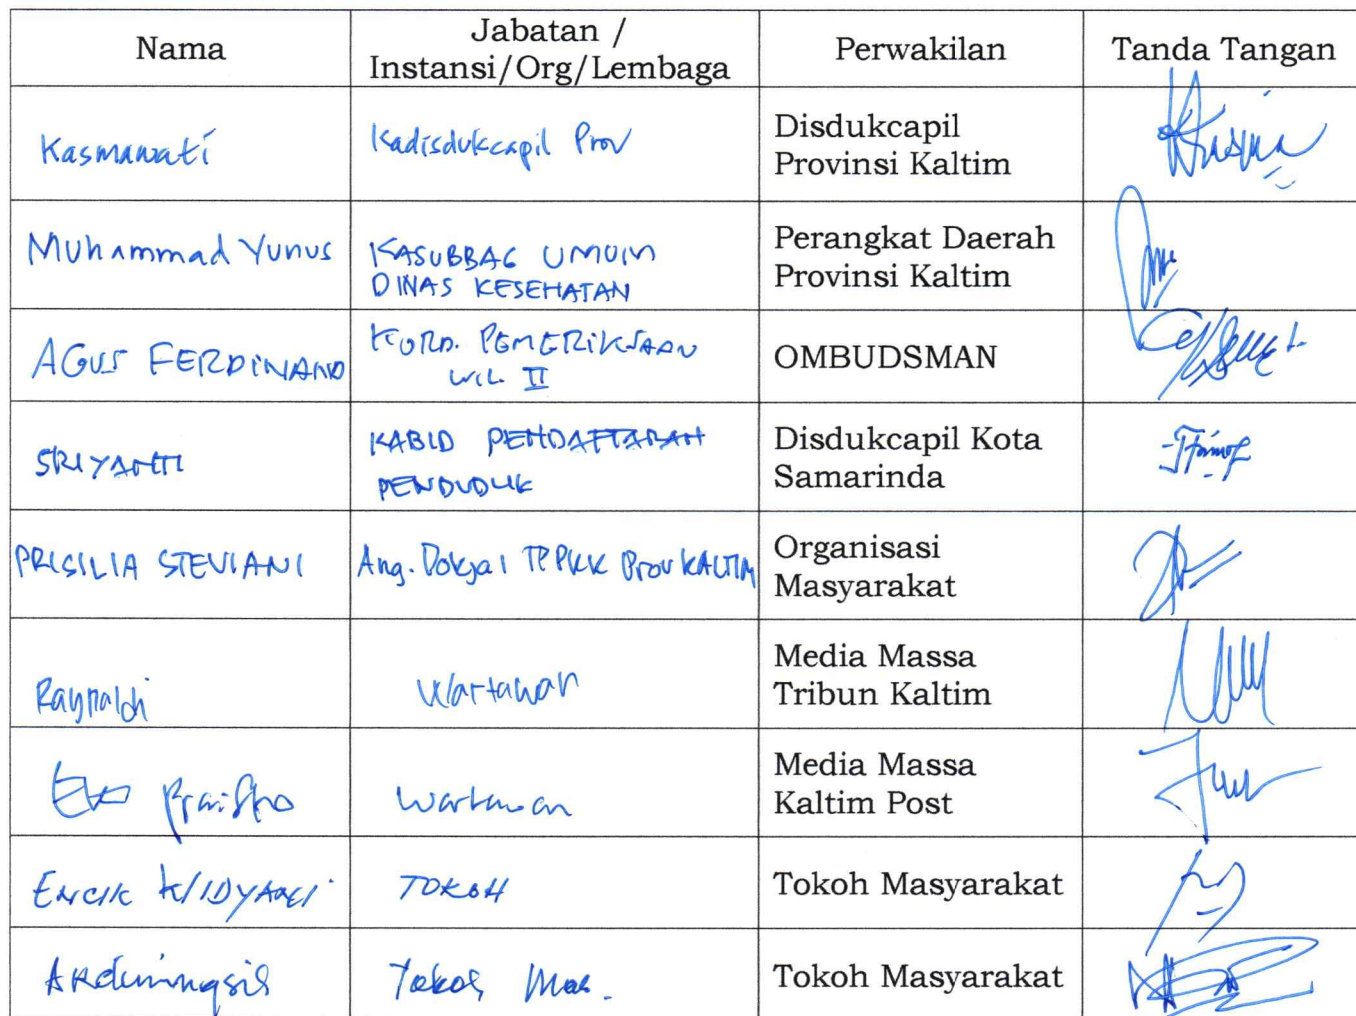 Nama
Jabatan /
Instansi/Org/Lembaga
Perwakilan
Tanda Tangan
Kasmawati
Kadisdukcapil Prov
Disdukcapil
Provinsi Kaltim
Muhammad Yunus
KASUBBAG UMUM
DINAS KESEHATAN
Perangkat Daerah
Provinsi Kaltim
AGUS FERDINAND
KORD. PEMERIKSAAN
WIL. II
OMBUDSMAN
SRIYANTI
KABID PENDAFTARAN
PENDUDUK
Disdukcapil Kota
Samarinda
PRISILIA STEVIANI
Ang. Pokja 1 TP PKK Prov KALTIM
Organisasi
Masyarakat
Raynaldi
Wartawan
Media Massa
Tribun Kaltim
Wartawan
Media Massa
Kaltim Post
ENCIK
TOKOH
Tokoh Masyarakat
Tokoh Mas.
Tokoh Masyarakat